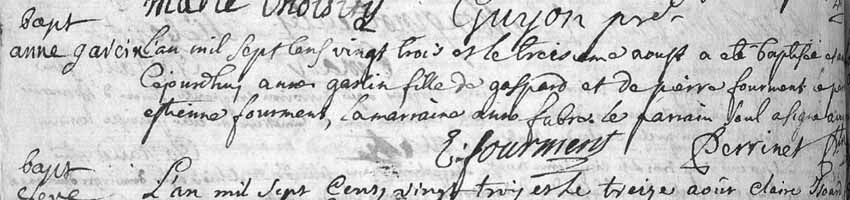 marie Choisity Guyon ptre
bapt
anne garcin L'an mil sept cens vingt trois et le treisieme aoust a eté baptisée
Cejourdhuy anne garcin fille de gaspard et de pierre fourment le
estienne fourment, la marraine anne fabre le parrain seul a signé
E. fourment Perrinet
bapt
L'an mil sept Cens vingt troy et le treize août claire